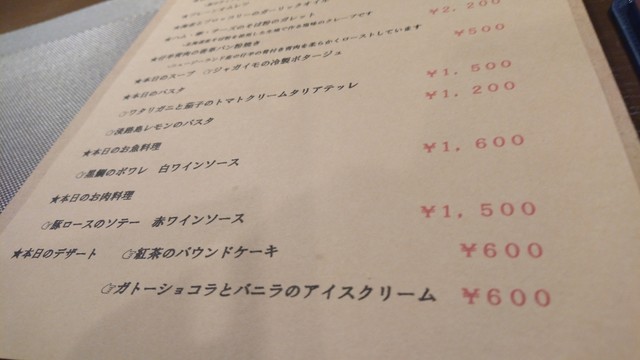 ★ハム・卵・チーズのそば粉のガレット
★仔羊背肉の香草パン粉焼き ￥2,200
★本日のスープ ☞ジャガイモの冷製ポタージュ ￥500
★本日のパスタ
☞ワタリガニと茄子のトマトクリームタリアテッレ ￥1,500
☞淡路島レモンのパスタ ￥1,200
★本日のお魚料理
☞黒鯛のポワレ 白ワインソース ￥1,600
★本日のお肉料理
☞豚ロースのソテー 赤ワインソース ￥1,500
★本日のデザート ☞紅茶のパウンドケーキ ￥600
☞ガトーショコラとバニラのアイスクリーム ￥600